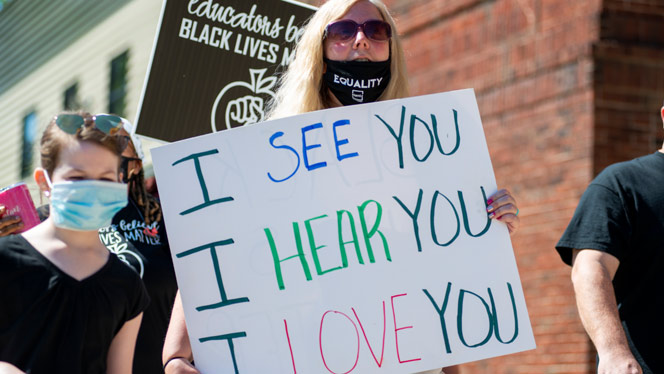 educators be
BLACK LIVES M
EQUALITY
I SEE YOU
I HEAR YOU
I LOVE YOU
believe
LIVES MATTER